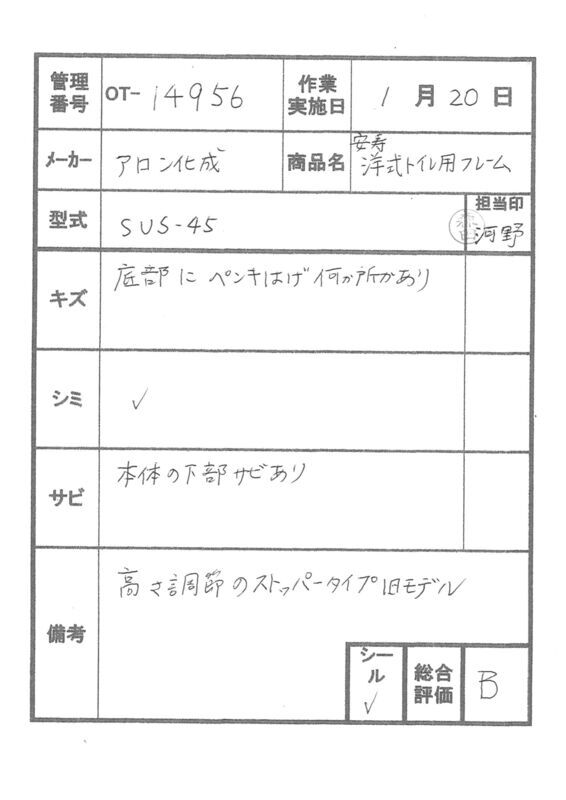 管理番号 OT- 14956 作業実施日 1月20日
メーカー アロン化成 商品名 安寿
洋式トイレ用フレーム
型式 SUS-45 担当印
河野
キズ 底部にペンキはげ何か所かあり
シミ ✓
サビ 本体の下部サビあり
備考 高さ調節のストッパータイプ旧モデル
シール ✓ 総合評価 B